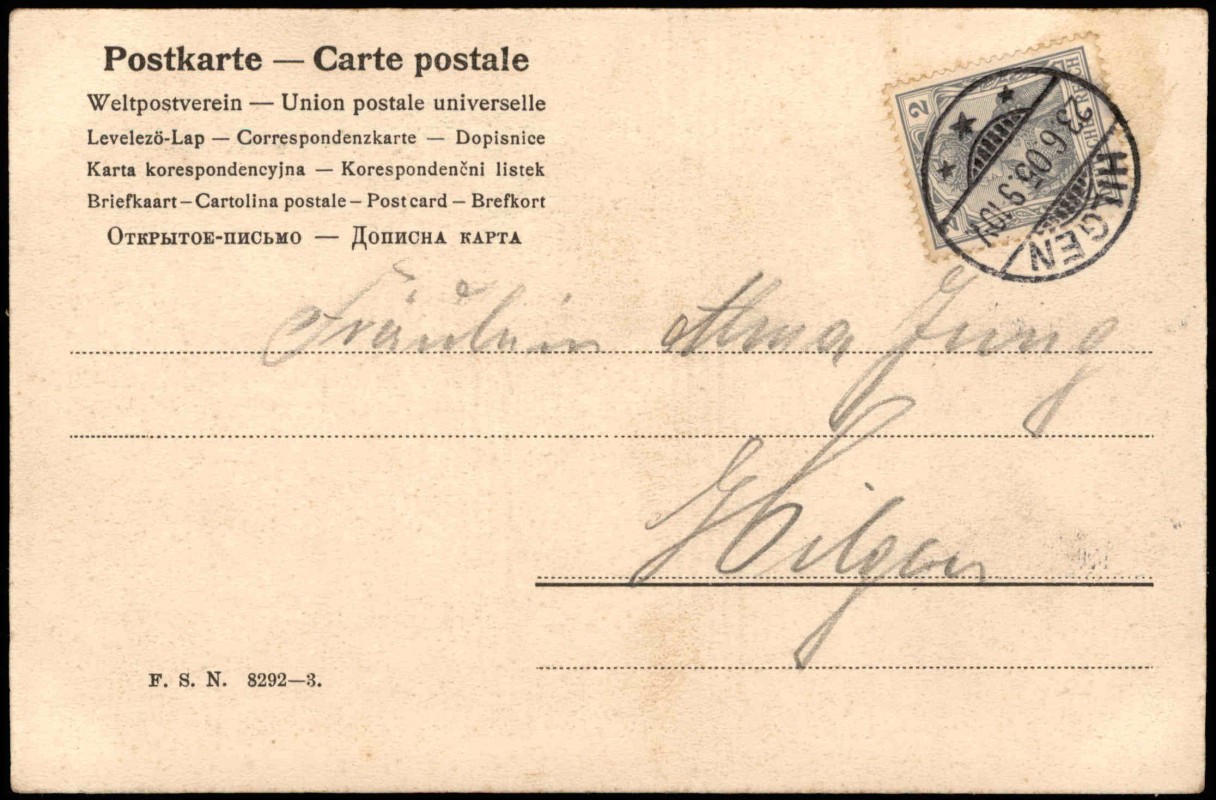 Postkarte — Carte postale
Weltpostverein — Union postale universelle
Levelezö-Lap — Correspondenzkarte — Dopisnice
Karta korespondencyjna — Korespondenčni listek
Briefkaart – Cartolina postale – Post card – Brefkort
Открытое-письмо — Дописна карта
2
2
HILGEN
23.6.05.9-10V
Fräulein Alma Jung
Hilgen
F. S. N. 8292—3.